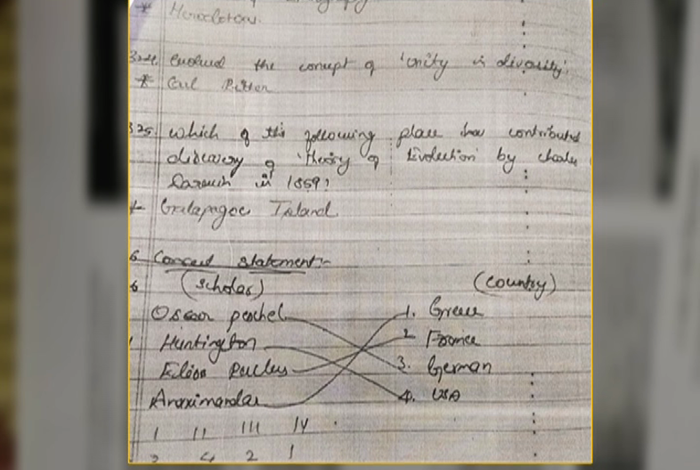 * Herodotous.
324. evolved the concept of 'unity in diversity'.
* Carl Ritter
325. which of the following place has contributed
discovery of 'theory of Evolution' by charles
Darwin in 1859?
* Galapagoe Island
6 Correct statement:-
6 (scholar) (country)
Oscar peschel 1. Greece
Huntington 2 France
Elisa Reclus 3. German
Anaximandar 4. USA
I II III IV
3 4 2 1